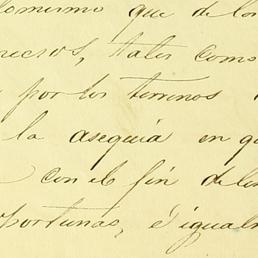 lo mismo que de los
recsos, tales como
por los terrenos
la asequia en qu
con el fin de los
portunas, é igualm